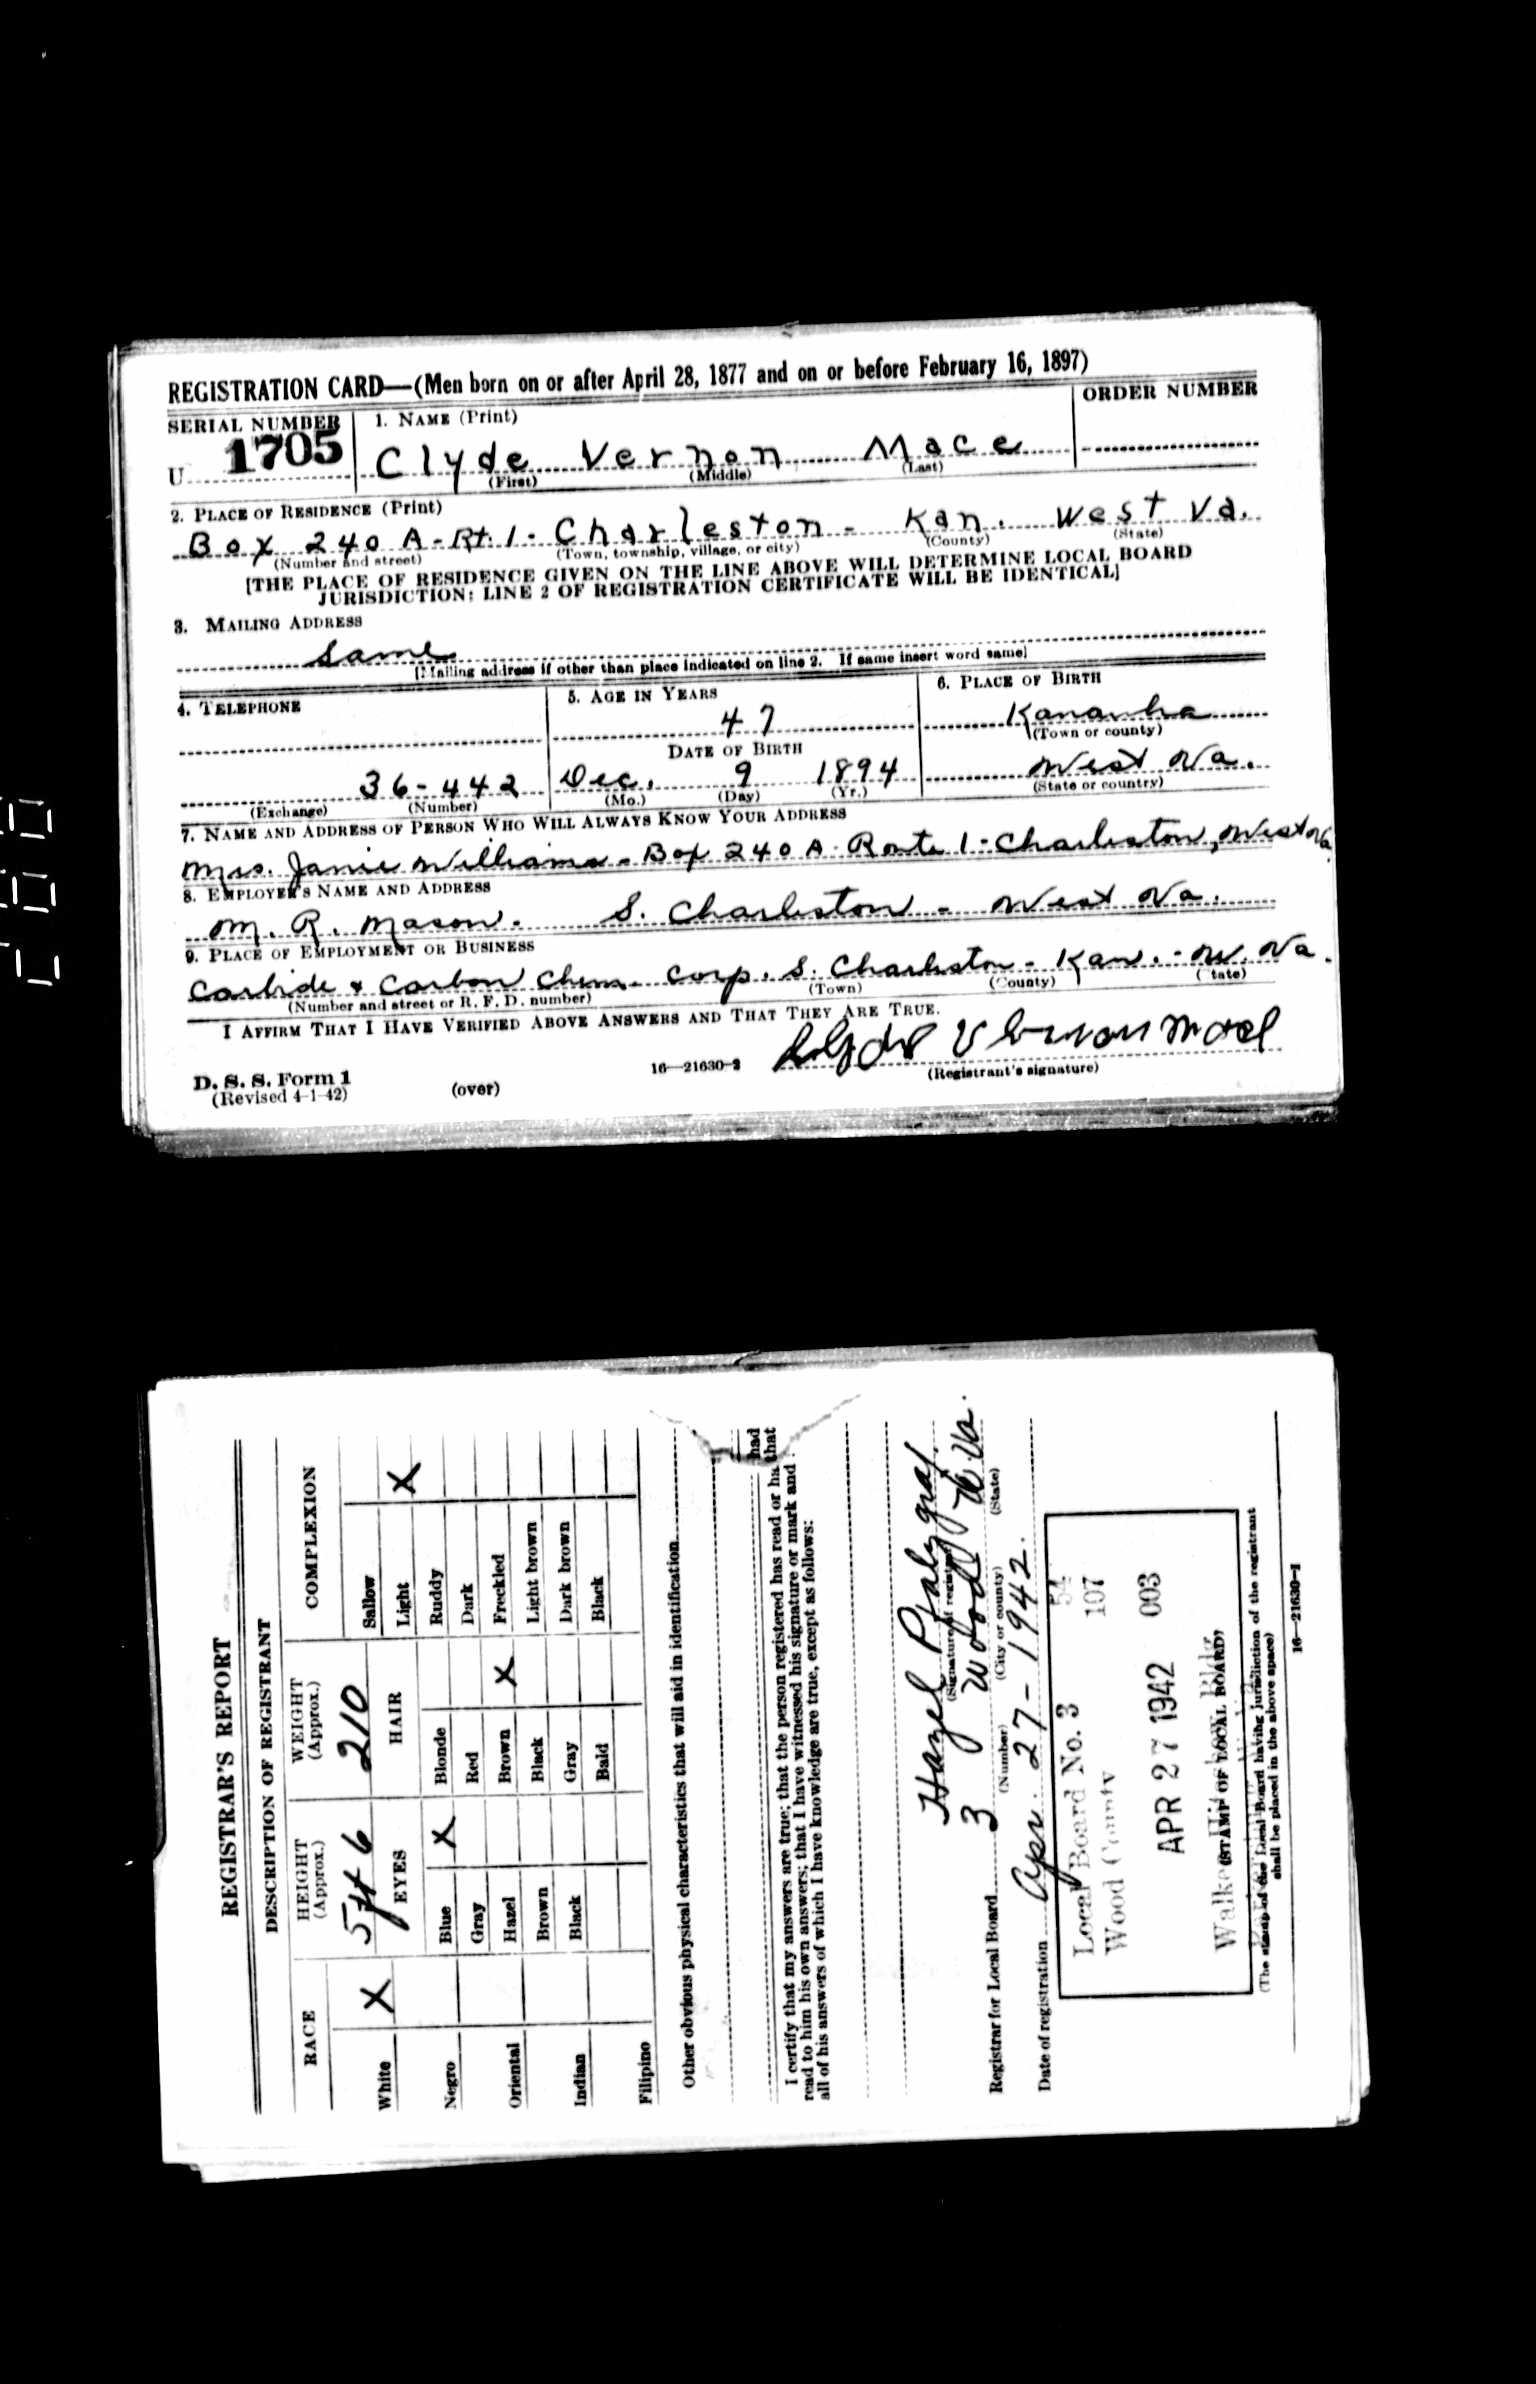 REGISTRATION CARD—(Men born on or after April 28, 1877 and on or before February 16, 1897)
SERIAL NUMBER 1. NAME (Print) ORDER NUMBER
U 1705 Clyde Vernon Mace
(First) (Middle) (Last)
2. PLACE OF RESIDENCE (Print)
Box 240 A - Rt. 1 - Charleston - Kan. West Va.
(Number and street) (Town, township, village, or city) (County) (State)
[THE PLACE OF RESIDENCE GIVEN ON THE LINE ABOVE WILL DETERMINE LOCAL BOARD
JURISDICTION; LINE 2 OF REGISTRATION CERTIFICATE WILL BE IDENTICAL]
3. MAILING ADDRESS
Same
[Mailing address if other than place indicated on line 2. If same insert word same]
4. TELEPHONE 5. AGE IN YEARS 6. PLACE OF BIRTH
47 Kanawha
(Town or county)
DATE OF BIRTH
36-442 Dec. 9 1894 West Va.
(Exchange) (Number) (Mo.) (Day) (Yr.) (State or country)
7. NAME AND ADDRESS OF PERSON WHO WILL ALWAYS KNOW YOUR ADDRESS
Mrs. Janie Williams - Box 240 A - Route 1 - Charleston, West Va.
8. EMPLOYER'S NAME AND ADDRESS
M. R. Mason. S. Charleston - West Va.
9. PLACE OF EMPLOYMENT OR BUSINESS
Carbide & Carbon Chem. Corp. S. Charleston - Kan. - W. Va.
(Number and street or R. F. D. number) (Town) (County) (State)
I AFFIRM THAT I HAVE VERIFIED ABOVE ANSWERS AND THAT THEY ARE TRUE.
Clyde Vernon Mace
D. S. S. Form 1 16—21630-2 (Registrant's signature)
(Revised 4-1-42) (over)
REGISTRAR'S REPORT
DESCRIPTION OF REGISTRANT
RACE HEIGHT (Approx.) WEIGHT (Approx.) COMPLEXION
5 ft 6 210
White X EYES HAIR Sallow
Light X
Negro Blue X Blonde Ruddy
Gray Red Dark
Oriental Hazel Brown X Freckled
Brown Black Light brown
Indian Black Gray Dark brown
Bald Black
Filipino
Other obvious physical characteristics that will aid in identification
had
I certify that my answers are true; that the person registered has read or has that
read to him his own answers; that I have witnessed his signature or mark and
all of his answers of which I have knowledge are true, except as follows:
Hazel Pfalzgraf
(Signature of registrar)
Registrar for Local Board 3 Wood W. Va.
(Number) (City or county) (State)
Date of registration Apr. 27 - 1942.
Local Board No. 3 54
Wood County 107
APR 27 1942 003
(STAMP OF LOCAL BOARD)
(The stamp of the Local Board having jurisdiction of the registrant
shall be placed in the above space)
16—21630-1